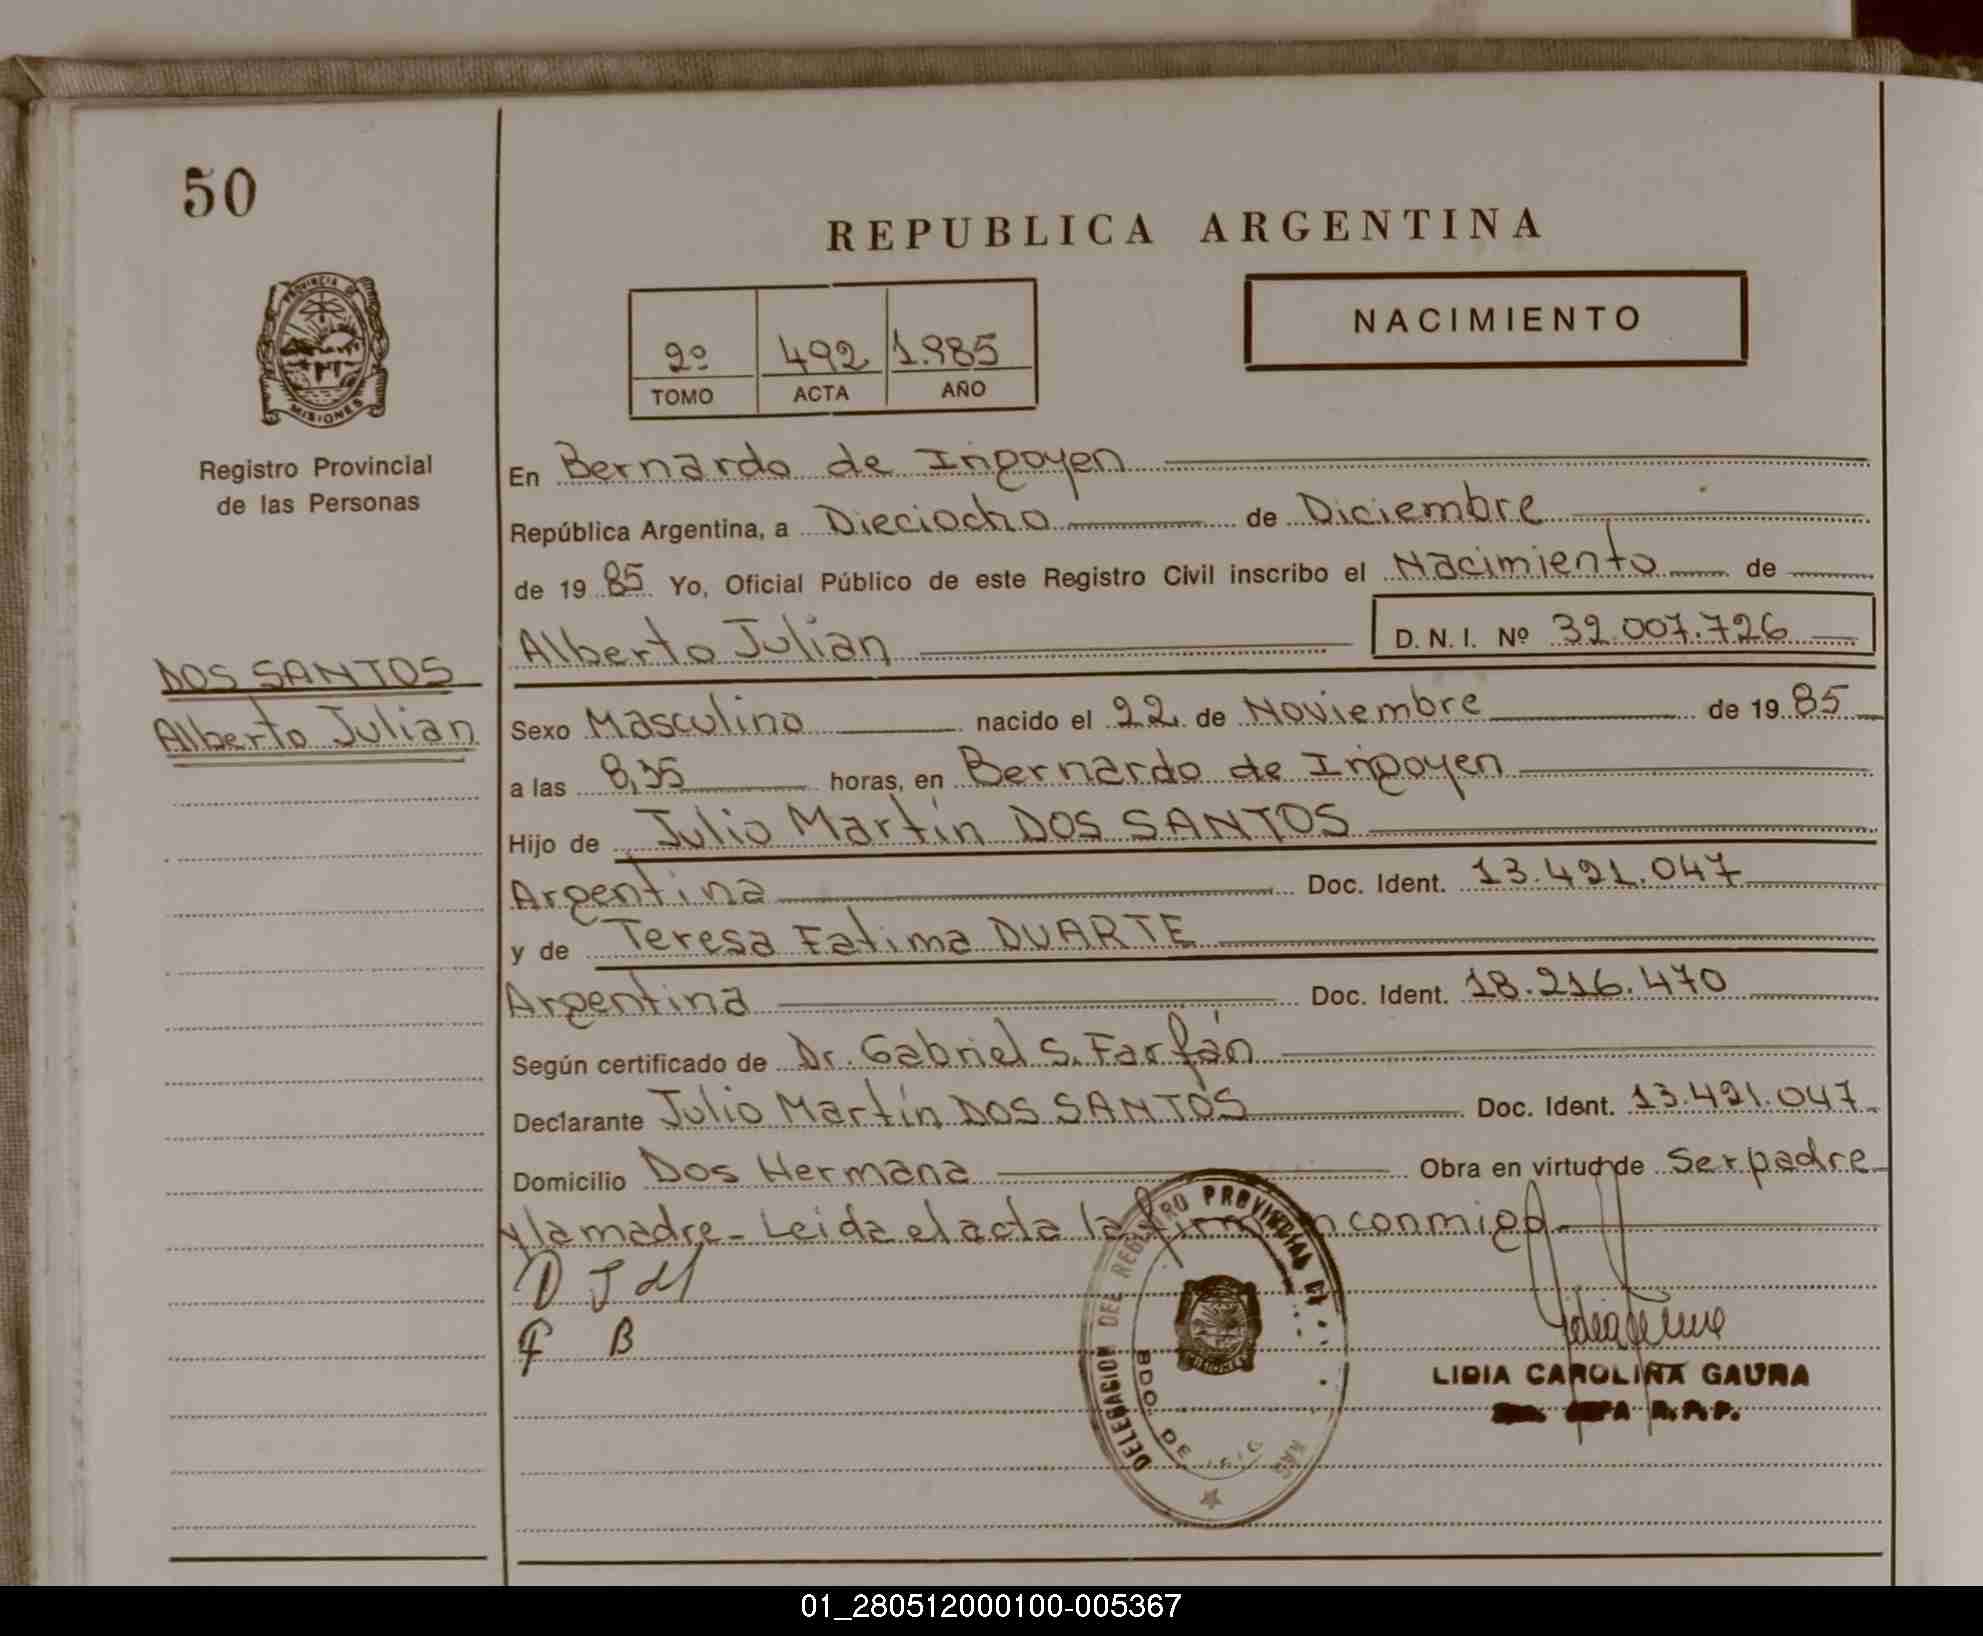 50
REPUBLICA ARGENTINA
PROVINCIA DE
MISIONES
NACIMIENTO
2º 492 1.985
TOMO ACTA AÑO
Registro Provincial
de las Personas
En Bernardo de Irigoyen
República Argentina, a Dieciocho de Diciembre
de 19 85 Yo, Oficial Público de este Registro Civil inscribo el Nacimiento de
Alberto Julian D.N.I. Nº 32.007.726
DOS SANTOS
Alberto Julian
Sexo Masculino nacido el 22 de Noviembre de 19 85
a las 8,35 horas, en Bernardo de Irigoyen
Hijo de Julio Martín DOS SANTOS
Argentina Doc. Ident. 13.421.047
y de Teresa Fatima DUARTE
Argentina Doc. Ident. 18.216.470
Según certificado de Dr. Gabriel S. Farfán
Declarante Julio Martín DOS SANTOS Doc. Ident. 13.421.047
Domicilio Dos Hermana Obra en virtud de ser padre
y la madre - Leida el acta la firman conmigo
D J M
F B
DELEGACION DEL REGISTRO PROVINCIAL DE
BDO. DE
LIDIA CAROLINA GAUNA
R.P.P.
01_280512000100-005367